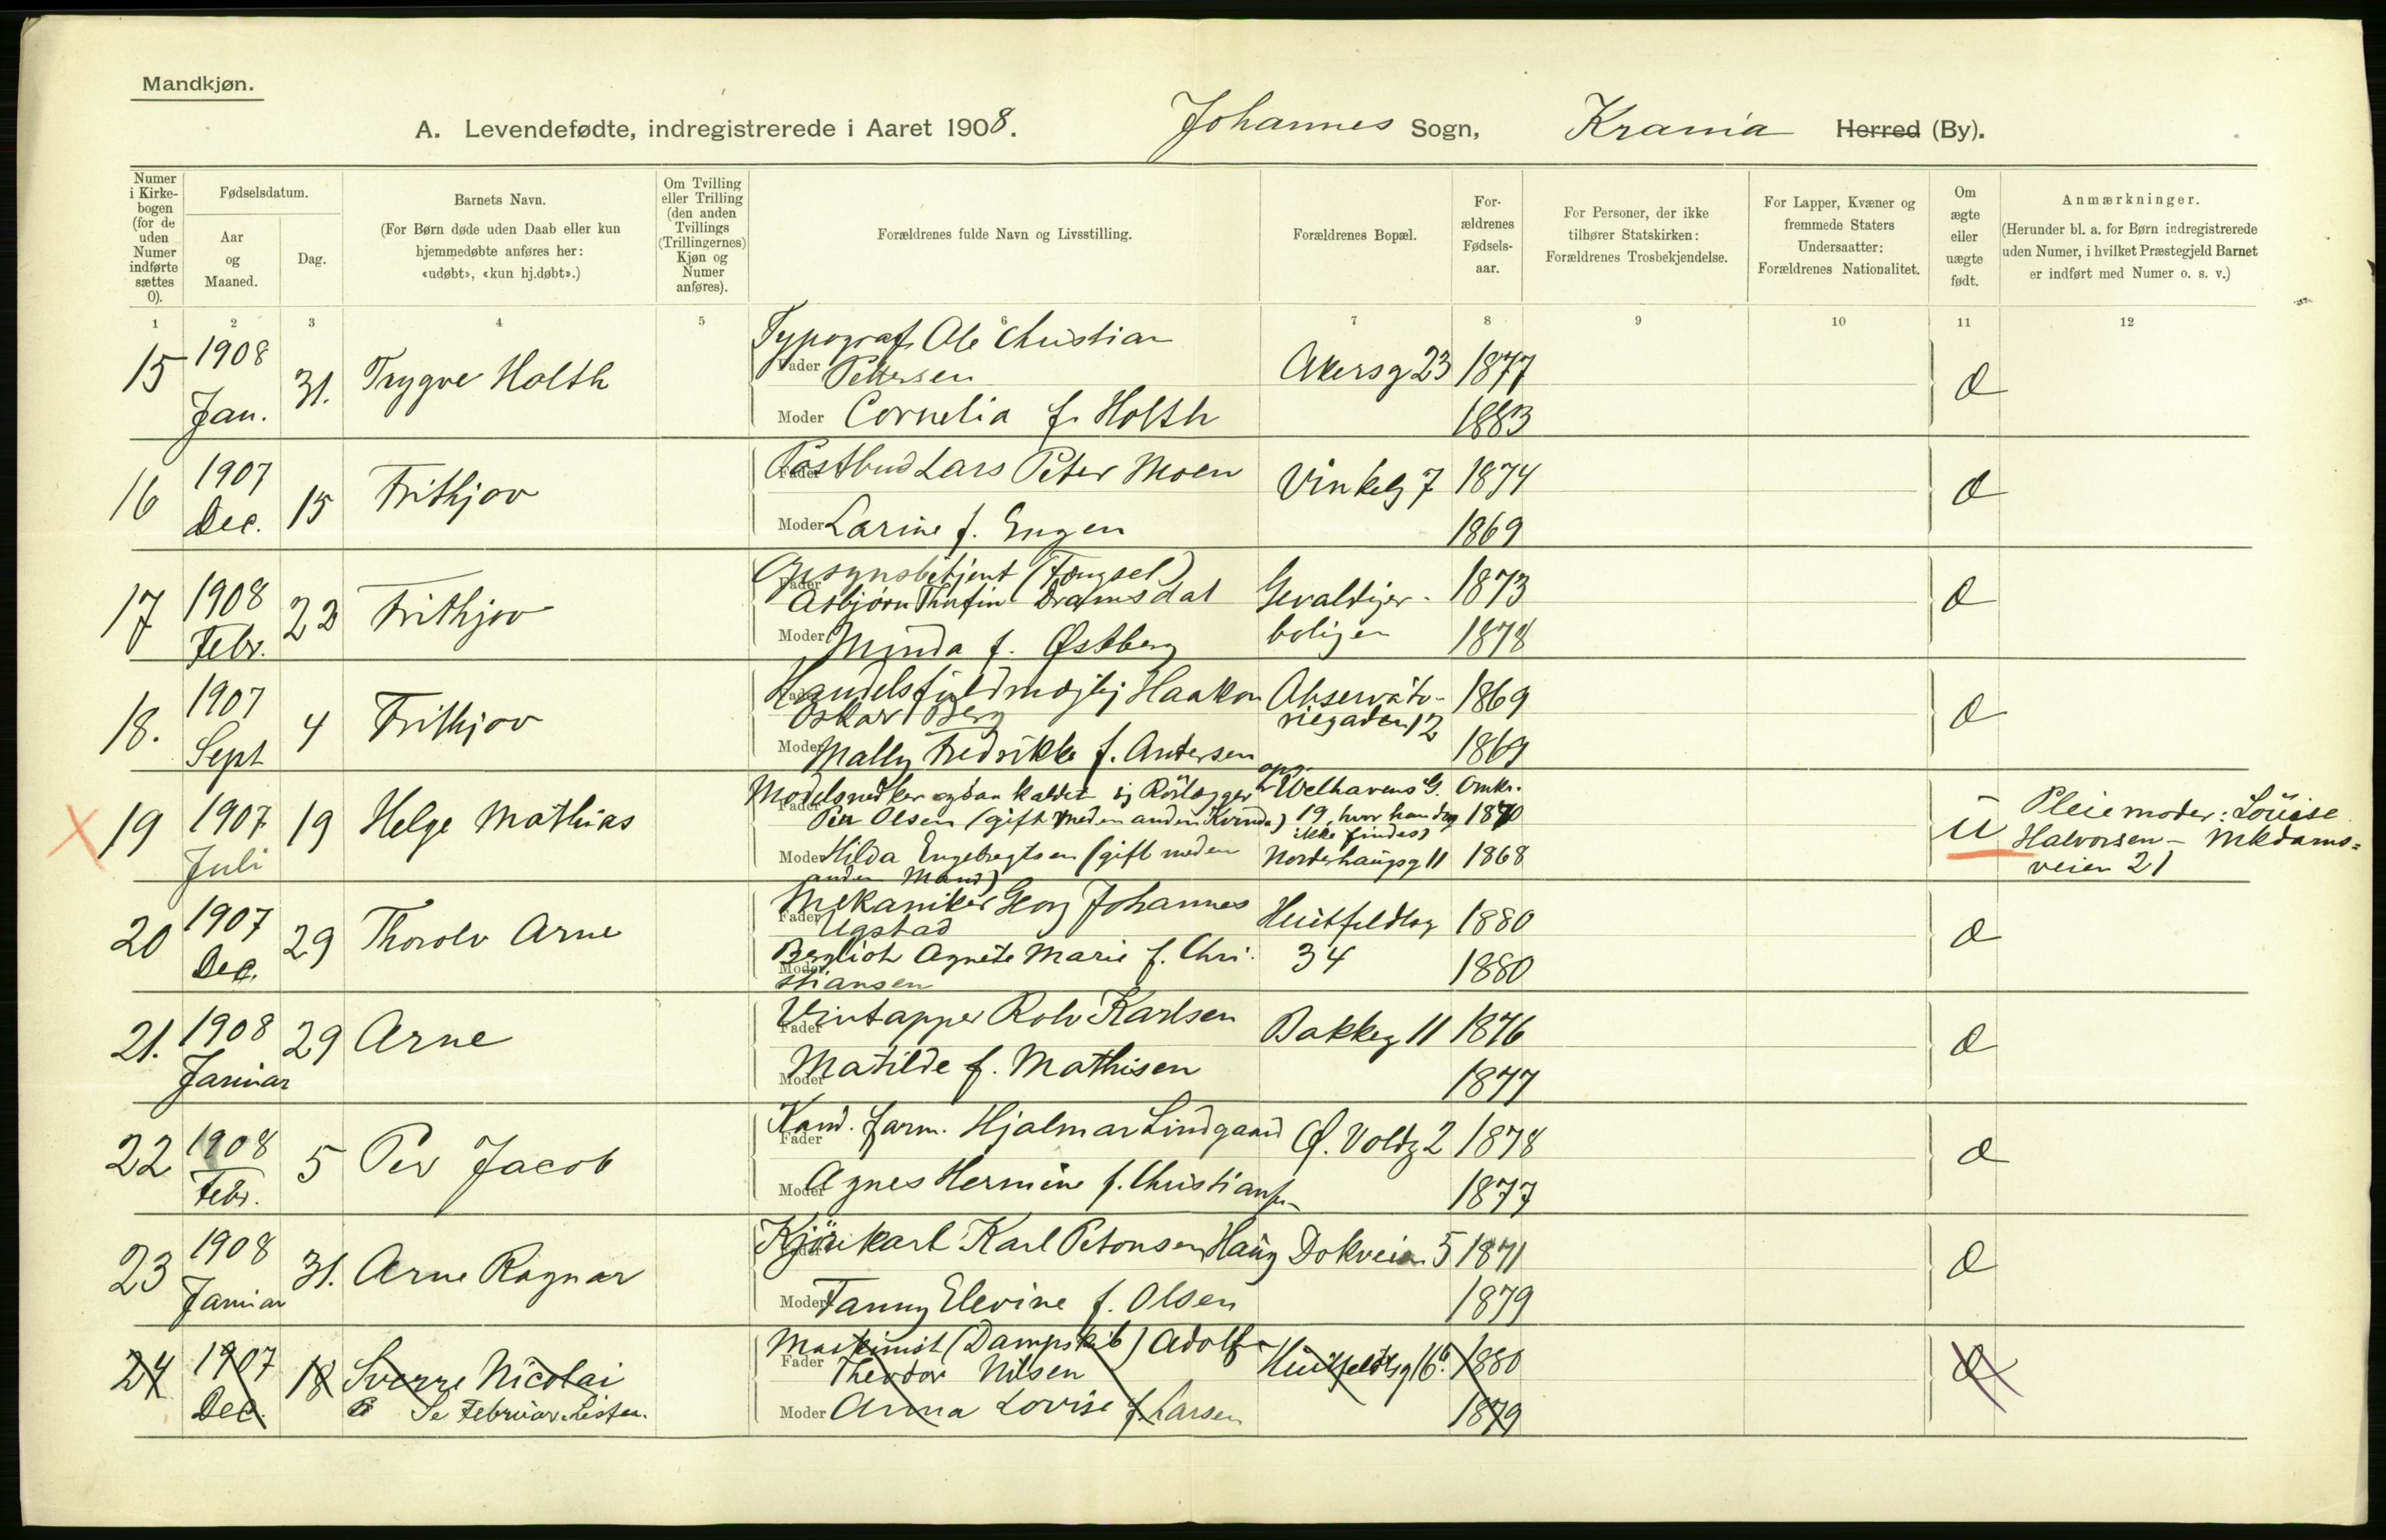 Mandkjøn.
A. Levendefødte, indregistrerede i Aaret 1908. Johannes Sogn, Krania Herred (By).
Numer i Kirkebogen (for de uden Numer indførte sættes 0).
Fødselsdatum.
Aar og Maaned.
Dag.
Barnets Navn.
(For Børn døde uden Daab eller kun hjemmedøbte anføres her: «udøbt», «kun hj.døbt».)
Om Tvilling eller Trilling (den anden Tvillings (Trillingernes) Kjøn og Numer anføres).
Forældrenes fulde Navn og Livsstilling.
Forældrenes Bopæl.
Forældrenes Fødselsaar.
For Personer, der ikke tilhører Statskirken: Forældrenes Trosbekjendelse.
For Lapper, Kvæner og fremmede Staters Undersaatter: Forældrenes Nationalitet.
Om ægte eller uægte født.
Anmærkninger.
(Herunder bl. a. for Børn indregistrerede uden Numer, i hvilket Præstegjeld Barnet er indført med Numer o. s. v.)
1 2 3 4 5 6 7 8 9 10 11 12
15 1908 Jan. 31. Trygve Holth
Typograf Ole Christian
Fader Pettersen Akersg 23 1877
Moder Cornelia f. Holth 1883
16 1907 Dec. 15 Frithjov
Fader Postbud Lars Peter Moen Vinkelg 7 1874
Moder Larine f. Engen 1869
17 1908 Febr. 22 Frithjov
Opsynsbetjent (Fængsel)
Fader Asbjørn Thorfin Dramsdal Gevaldiger- 1873
Moder Minda f. Østberg boligen 1878
18. 1907 Sept 4 Frithjov
Fader Handelsfuldmægtig Haakon Observato- 1869
Oskar Berg riegaden 12
Moder Mally Fredrikke f. Andersen 1869
19 1907 Juli 19 Helge Mathias
Modelsnedker ogsaa kaldet sig Rörlægger opg. Welhavens G. Omkr.
Fader Peer Olsen (gift med en anden Kvinde) 19, hvor han dog 1870
ikke findes)
Moder Hilda Engebregtsen (gift med en Norderhaugsg 11 1868
anden Mand)
u Pleiemoder: Louise
Halvorsen - Mkdams=
veien 21
20 1907 Dec. 29 Thorolv Arne
Fader Mekaniker Georg Johannes Huitfeldtsg 1880
Ugstad
Moder Bergliot Agnete Marie f. Chri- 34 1880
stiansen
21. 1908 Januar 29 Arne
Fader Vintapper Rolv Karlsen Bakkeg 11 1876
Moder Matilde f. Mathisen 1877
22 1908 Febr. 5 Per Jacob
Fader Kand. farm. Hjalmar Lindgaard Ø. Voldg 2 1878
Moder Agnes Hermine f. Christiansen 1877
23 1908 Januar 31. Arne Ragnar
Fader Kjörekarl Karl Petonsen Haug Dokveien 5 1871
Moder Fanny Elevine f. Olsen 1879
24 1907 Dec. 18 Sverre Nicolai
Se Februar-Listen.
Maskinist (Dampskib) Adolf
Fader Theodor Nilsen Huitfeldtsg 16b. 1880
Moder Anna Lovise f. Larsen 1879